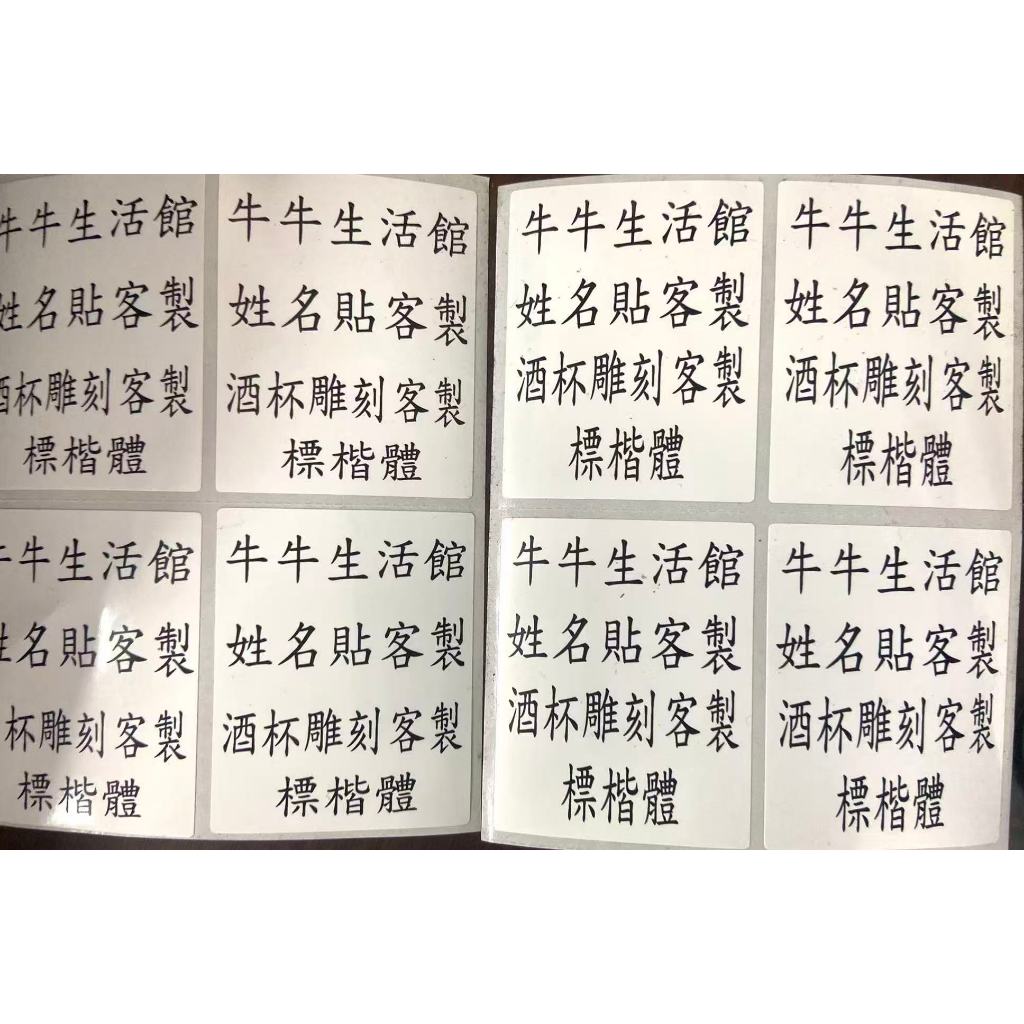 牛牛生活館
姓名貼客製
酒杯雕刻客製
標楷體
牛牛生活館
姓名貼客製
酒杯雕刻客製
標楷體
牛牛生活館
姓名貼客製
酒杯雕刻客製
標楷體
牛牛生活館
姓名貼客製
酒杯雕刻客製
標楷體
牛牛生活館
姓名貼客製
杯雕刻客製
標楷體
牛牛生活館
姓名貼客製
酒杯雕刻客製
標楷體
牛牛生活館
姓名貼客製
酒杯雕刻客製
標楷體
牛牛生活館
姓名貼客製
酒杯雕刻客製
標楷體